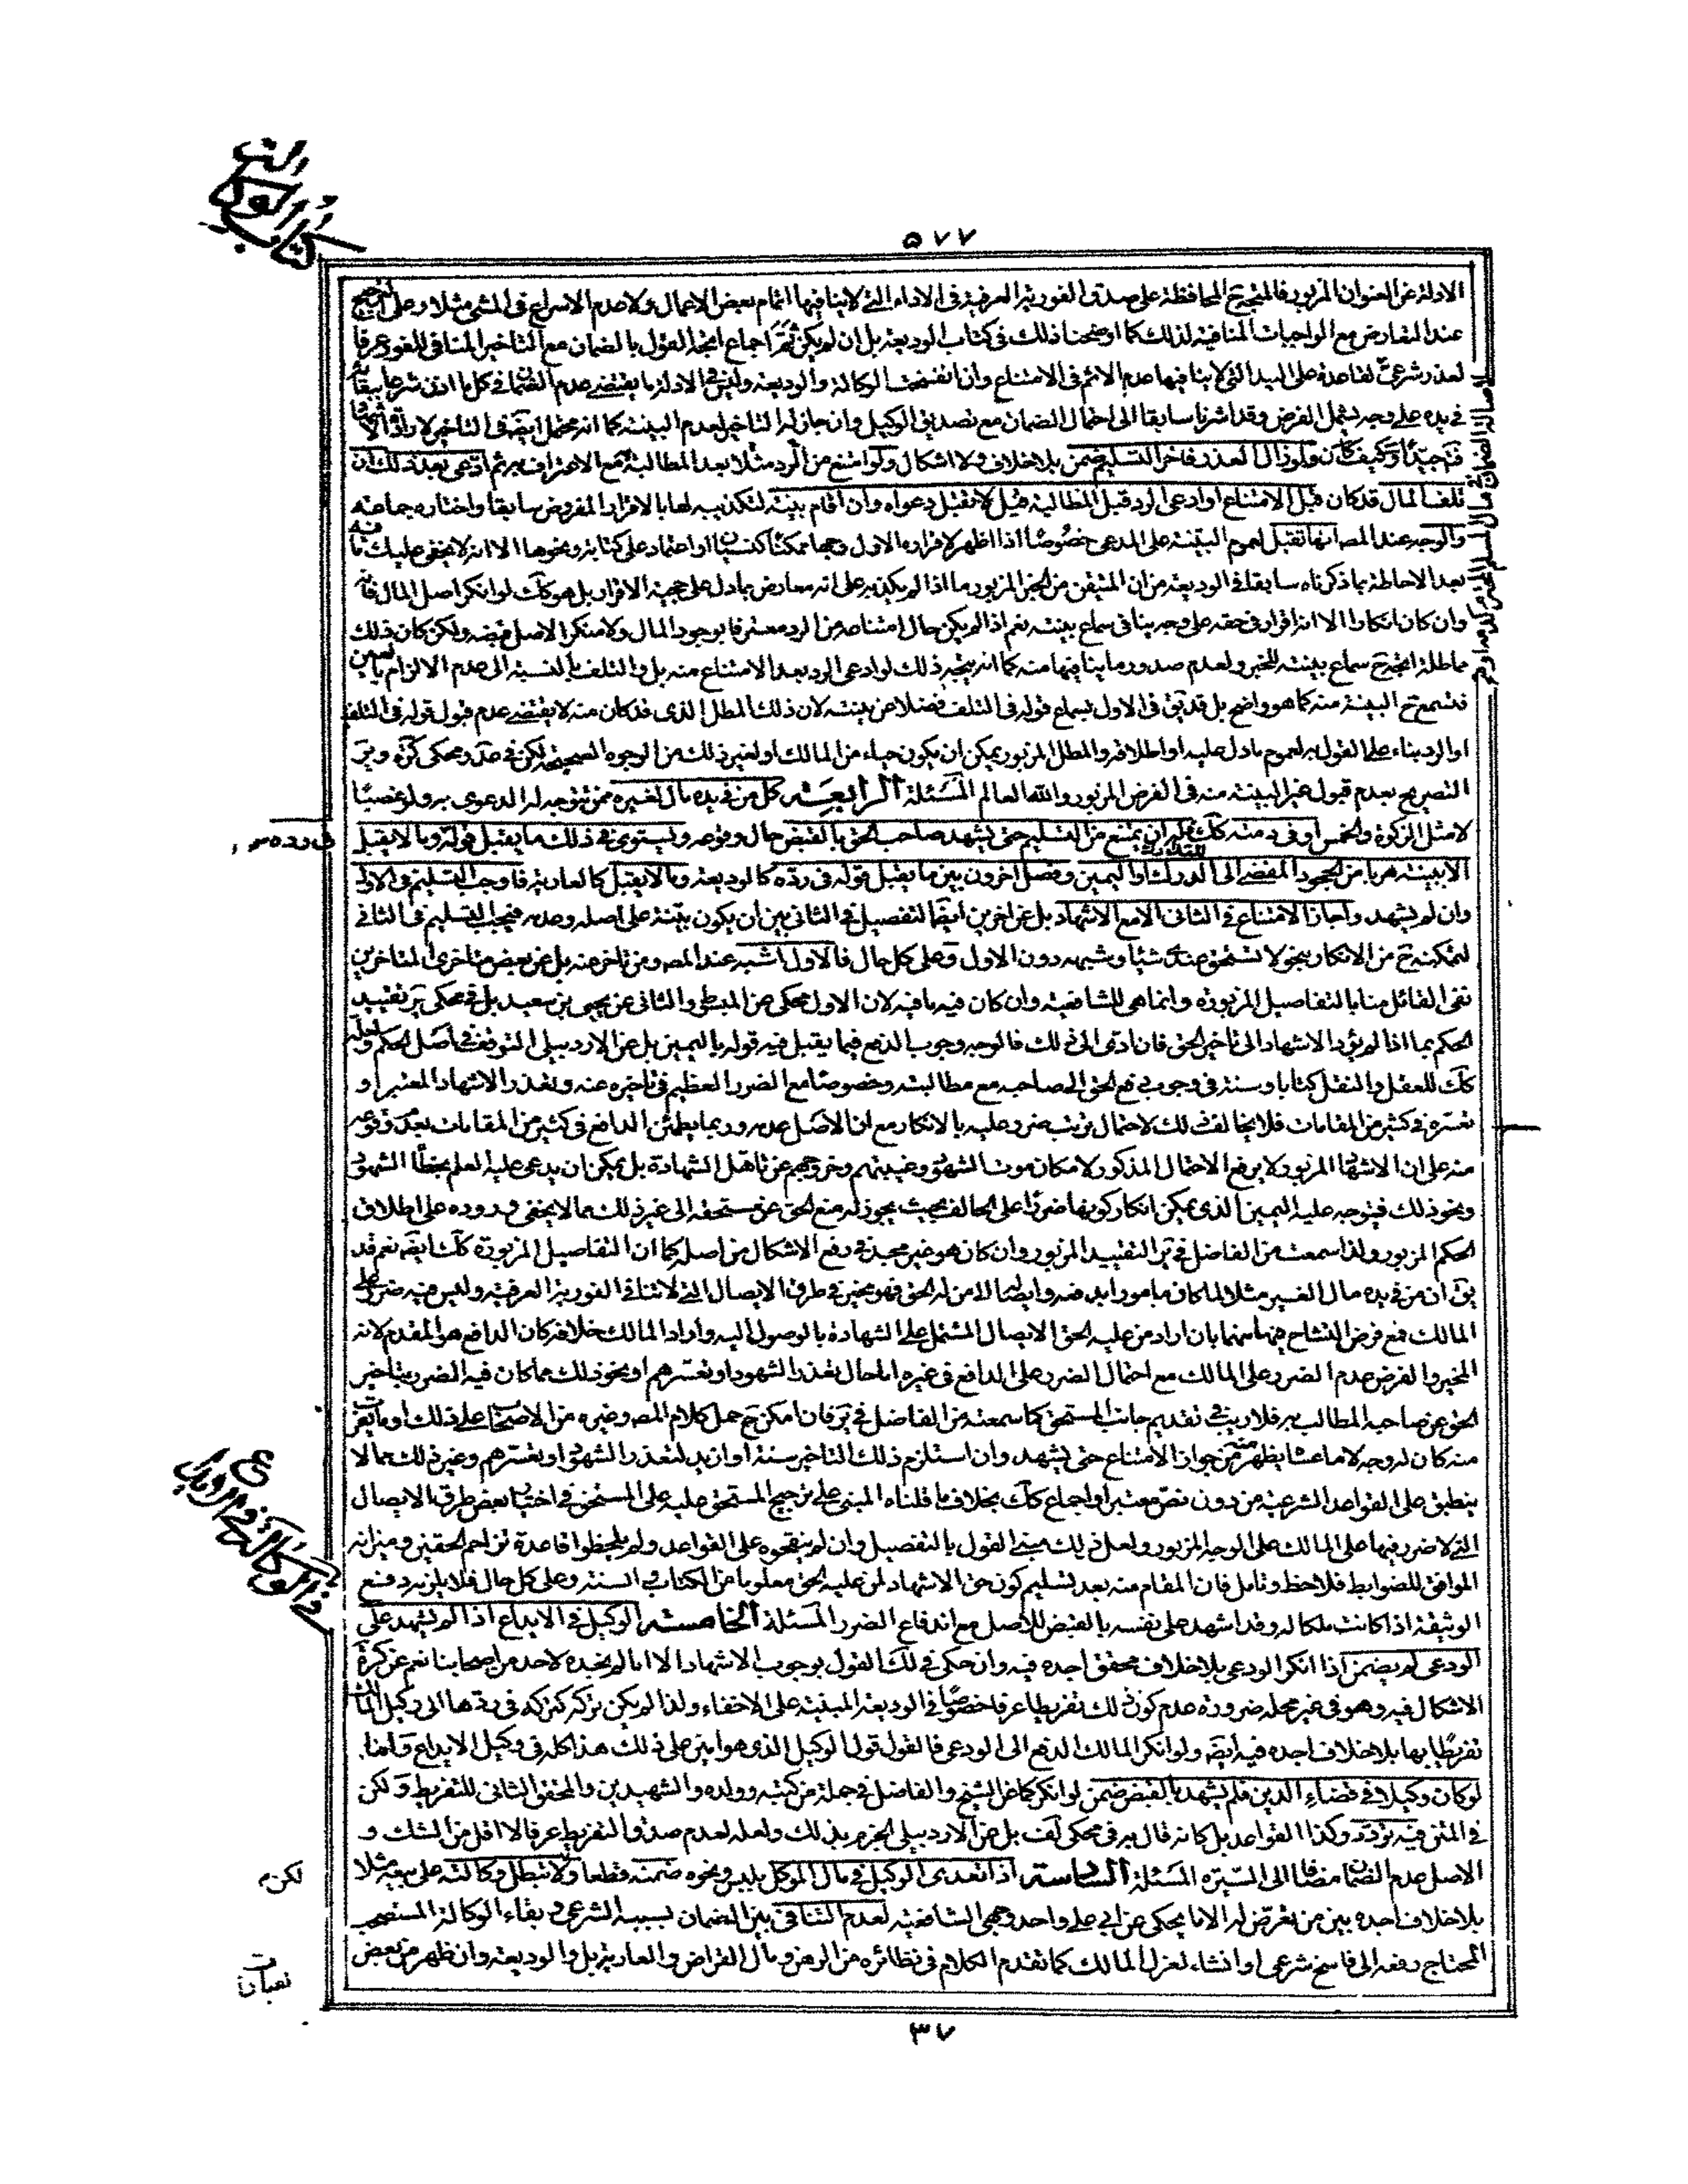 كتاب الوكالة
٥٧٧
الادلة عن العنوان المزبور فالمتجه ح المحافظة على صدق الفورية العرفية فى الاداء التى لا ينافيها اتمام بعض الاعمال ولا عدم الاسراع فى المشى مثلا وعلى الترجيح
عند التعارض مع الواجبات المنافية لذلك كما اوضحنا ذلك فى كتاب الوديعة بل ان لم يكن ثم اجماع اتجه القول بالضمان مع التاخير المنافى للفور عرفا
لعذر شرعى لقاعدة على اليد التى لا ينافيها عدم الاثم فى الامتناع وان انفسخت الوكالة والوديعة وليس فى الادلة ما يقتضى عدم الضمان فى كل ما اذن شرعا
فى يده على وجه يشمل الفرض وقد اشرنا سابقا الى احتمال الضمان مع تصديق الوكيل وان جاز له التاخير لعدم البينة كما انه محتمل ايضا فى التاخير
فتجه جيدا وكيف كان فلو زال العذر فاخر التسليم ضمن بلا خلاف ولا اشكال ولو امتنع من الرد مثلا بعد المطالبة مع الاعتراف به ثم ادعى بعد ذلك ان
تلف المال قد كان قبل الامتناع او ادعى الرد قبل المطالبة قيل لا تقبل دعواه وان اقام بينة لتكذيبه لها بالاقرار المفروض سابقا واختاره جماعة
والوجه عند المصنف انها تقبل لعموم البينة على المدعى خصوصا اذا اظهر لاقراره الاول وجها ممكنا كنسيان او اعتماد على كتابة ونحوها الا انه لا يخفى عليك ما فيه
بعد الاحاطة بما ذكرناه سابقا فى الوديعة من ان المتيقن من الخبر المزبور ما اذا لم يكذبه على انه معارض بما دل على حجية الاقرار بل هو كك لو انكر اصل المال
وان كان انكارا الا انه اقرار فى حقه على وجه ينافى سماع بينته نعم اذا لم يكن حال امتناعه من الرد معترفا بوجود المال ولا منكرا لاصل قبضه ولكن كان ذلك
مماطلة اتجه ح سماع بينته للخبر ولعدم صدور ما ينافيها منه كما انه يتجه ذلك لو ادعى الرد بعد الامتناع منه بل والتلف بالنسبة الى عدم الالزام بالعين
فتسمع ح البينة منه كما هو واضح بل قد يق فى الاول بسماع قوله فى التلف فضلا عن بينته لان ذلك المطل الذى قد كان منه لا يقتضى عدم قبول قوله فى التلف
او الرد بناء على القول به لعموم ما دل عليه او اطلاقه والمطل المزبور يمكن ان يكون حياء من المالك او لغير ذلك من الوجوه الصحيحة لكن فى عد ومحكى كره وير
التصريح بعدم قبول غير البينة منه فى الفرض المزبور والله العالم المسئلة الرابعة كل من فى يده مال لغيره ممن يتوجه له الدعوى به ولو غصبا
لا مثل الزكوة والخمس او فى ذمته كك فله ان يمتنع من التسليم حتى يشهد صاحب الحق بالقبض حال وقوعه ويستوى فى ذلك ما يقبل قوله وما لا يقبل
الا ببينة هربا من الجحود المفضى الى الدرك او اليمين وفصل اخرون بين ما يقبل قوله فى رده كالوديعة وما لا يقبل كالعارية فاوجب التسليم فى الاول
وان لم يشهد واجاز الامتناع فى الثانى الا مع الاشهاد بل عن اخرين ايضا التفصيل فى الثانى بين ان يكون بينة على اصله وعدمه فيجب التسليم فى الثانى
لتمكنه ح من الانكار بنحو لا تستحق عندى شيئا وشبهه دون الاول وعلى كل حال فالاول اشبه عند المصنف ومن تاخر عنه بل عن بعض متاخرى المتاخرين
نفى القائل منا بالتفاصيل المزبورة وانما هى للشافعية وان كان فيه ما فيه لان الاول محكى عن المبسوط والثانى عن يحيى بن سعيد بل فى محكى ير تقييد
الحكم بما اذا لم يؤد الاشهاد الى تاخير الحق فان ادى الى ذلك فالوجه وجوب الدفع فيما يقبل فيه قوله باليمين بل عن الاردبيلى التوقف فى اصل الحكم ولعله
كك للعقل والنقل كتابا وسنة فى وجوب دفع الحق الى صاحبه مع مطالبته وخصوصا مع الضرر العظيم فى تاخيره عنه وتعذر الاشهاد المعتبر او
تعسره فى كثير من المقامات فلا يخالف ذلك لاحتمال ترتب ضرر عليه بالانكار مع ان الاصل عدمه وربما يطمئن الدافع فى كثير من المقامات بعدم وقوعه
منه على ان الاشهاد المزبور لا يرفع الاحتمال المذكور لامكان موت الشهود وغيبتهم وخروجهم عن تاهل الشهادة بل يمكن ان يدعى عليه العلم بخطأ الشهود
ونحو ذلك فيتوجه عليه اليمين الذى يمكن انكار كونها ضررا على الحالف بحيث يجوز له منع الحق عن مستحقه الى غير ذلك مما لا يخفى وروده على اطلاق
الحكم المزبور ولذا سمعت من الفاضل فى ير التقييد المزبور وان كان هو غير مجد فى رفع الاشكال من اصله كما ان التفاصيل المزبورة كك ايضا نعم قد
يق ان من فى يده مال الغير مثلا لما كان مامورا بدفعه وايصاله الى من له الحق فهو مخير فى طرق الايصال التى لا تنافى الفورية العرفية وليس فيه ضرر على
المالك فمع فرض التشاح فيها منهما بان اراد من عليه الحق الايصال المشتمل على الشهادة بالوصول اليه واراد المالك خلافه كان الدافع هو المقدم لانه
المخير والفرض عدم الضرر على المالك مع احتمال الضرر على الدافع فى غيره اما حال تعذر الشهود او تعسرهم او نحو ذلك مما كان فيه الضرر بتاخير
الحق عن صاحبه المطالب به فلا ريب فى تقديم جانب المستحق كما سمعته من الفاضل فى ير فان امكن ح حمل كلام المصنف وغيره من الاصحاب على ذلك او ما يقرب
منه كان له وجه لا ما عساه يظهر منه من جواز الامتناع حتى يشهد وان استلزم ذلك التاخير سنة او ازيد لتعذر الشهود او تعسرهم وغير ذلك مما لا
ينطبق على القواعد الشرعية من دون نص معتبر او اجماع كك بخلاف ما قلناه المبنى على ترجيح المستحق عليه على المستحق فى اختيار بعض طرق الايصال
التى لا ضرر فيها على المالك على الوجه المزبور ولعل ذلك مبنى القول بالتفصيل وان لم ينقحوه على القواعد ولم يلحظوا قاعدة تزاحم الحقين وميزانه
الموافق للضوابط فلاحظ وتامل فان المقام منه بعد تسليم كون حق الاشهاد لمن عليه الحق معلوما من الكتاب والسنة وعلى كل حال فلا يلزمه دفع
الوثيقة اذا كانت ملكا له وقد اشهد على نفسه بالقبض للاصل مع اندفاع الضرر المسئلة الخامسة الوكيل فى الايداع اذا لم يشهد على
الودعى لم يضمن اذا انكر الودعى بلا خلاف محقق اجده فيه وان حكى فى لك القول بوجوب الاشهاد الا انا لم نجده لاحد من اصحابنا نعم عن كره
الاشكال فيه وهو فى غير محله ضرورة عدم كون ذلك تفريطا عرفا خصوصا فى الوديعة المبنية على الاخفاء ولذا لم يكن تركه كتركه فى ردها الى وكيل المالك
تفريطا بها بلا خلاف اجده فيه ايضا ولو انكر المالك الدفع الى الودعى فالقول قول الوكيل الذى هو امين على ذلك هذا كله فى وكيل الايداع واما
لو كان وكيلا فى قضاء الدين فلم يشهد بالقبض ضمن لو انكر كما عن الشيخ والفاضل فى جملة من كتبه وولده والشهيدين والمحقق الثانى للتفريط ولكن
فى المتن فيه تردد وكذا القواعد بل كانه قال به فى محكى لف بل عن الاردبيلى الجزم بذلك ولعله لعدم صدق التفريط عرفا لا اقل من الشك و
الاصل عدم الضمان مضافا الى السيرة المسئلة السادسة اذا تعدى الوكيل فى مال الموكل بلبس ونحوه ضمنه قطعا ولا تبطل وكالته على بيعه مثلا
بلا خلاف اجده بين من تعرض له الا ما يحكى عن ابى على واحد وجهى الشافعية لعدم التنافى بين الضمان لسببه الشرعى وبقاء الوكالة المستصحب
المحتاج رفعه الى فاسخ شرعى او انشاء لعزل المالك كما تقدم الكلام فى نظائره من الرهن ومال القراض والعارية بل والوديعة وان ظهر من بعض
لكن م
٣٧